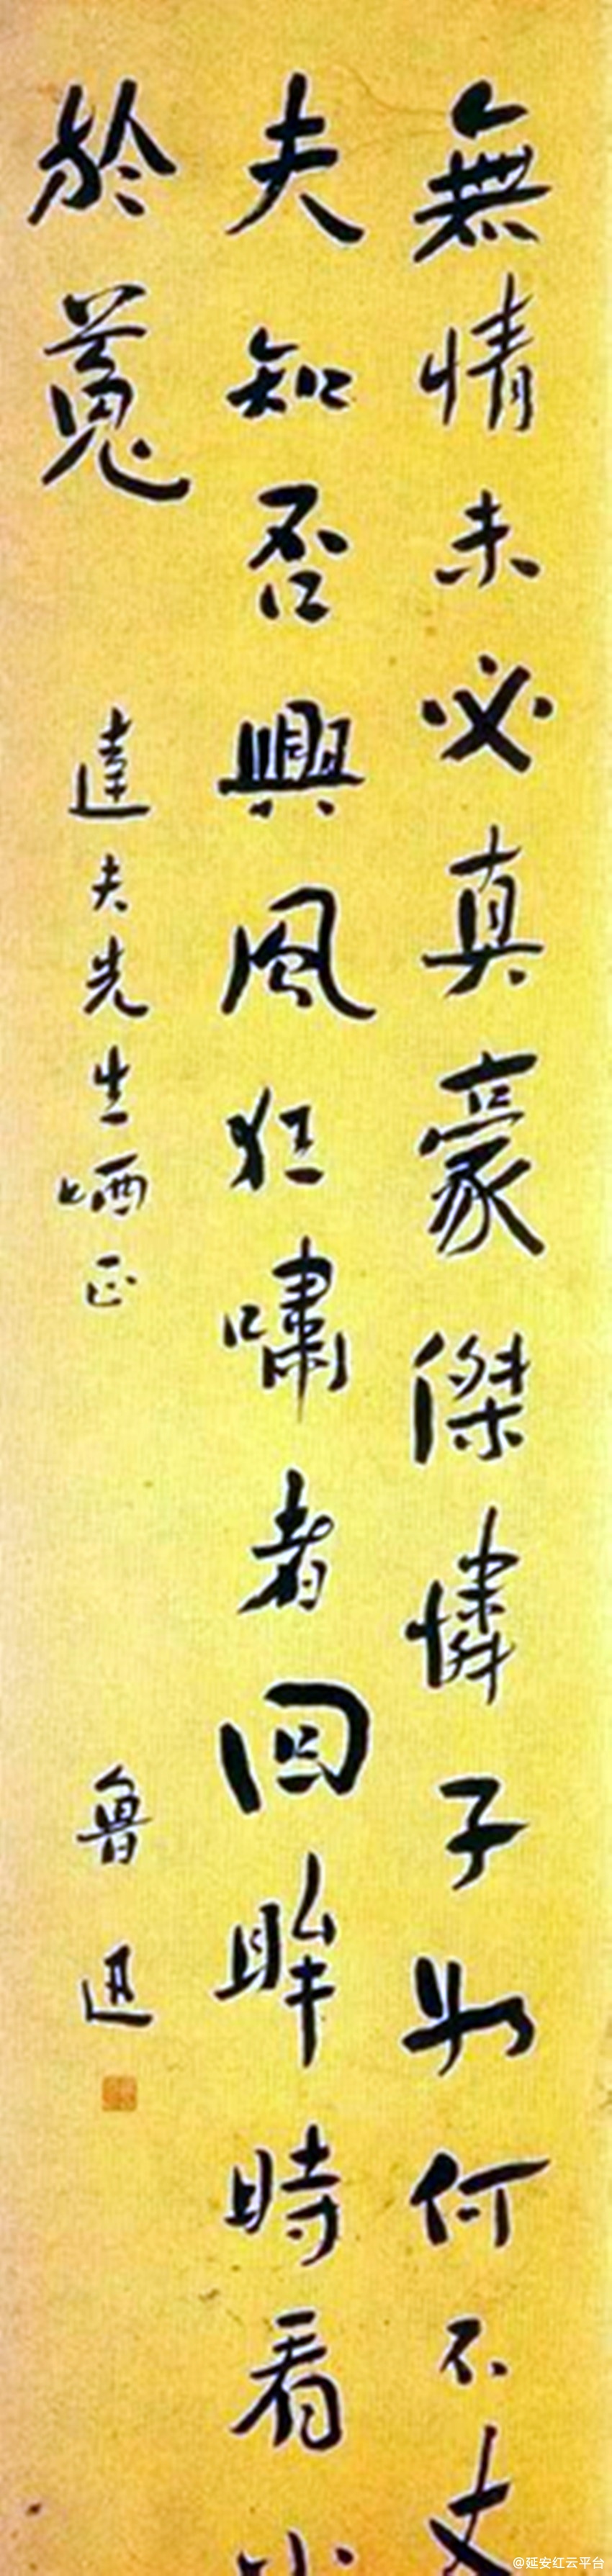 無情未必真豪傑憐子如何不丈
夫知否興風狂嘯者回眸時看小
於菟
達夫先生哂正
魯迅
@延安红云平台